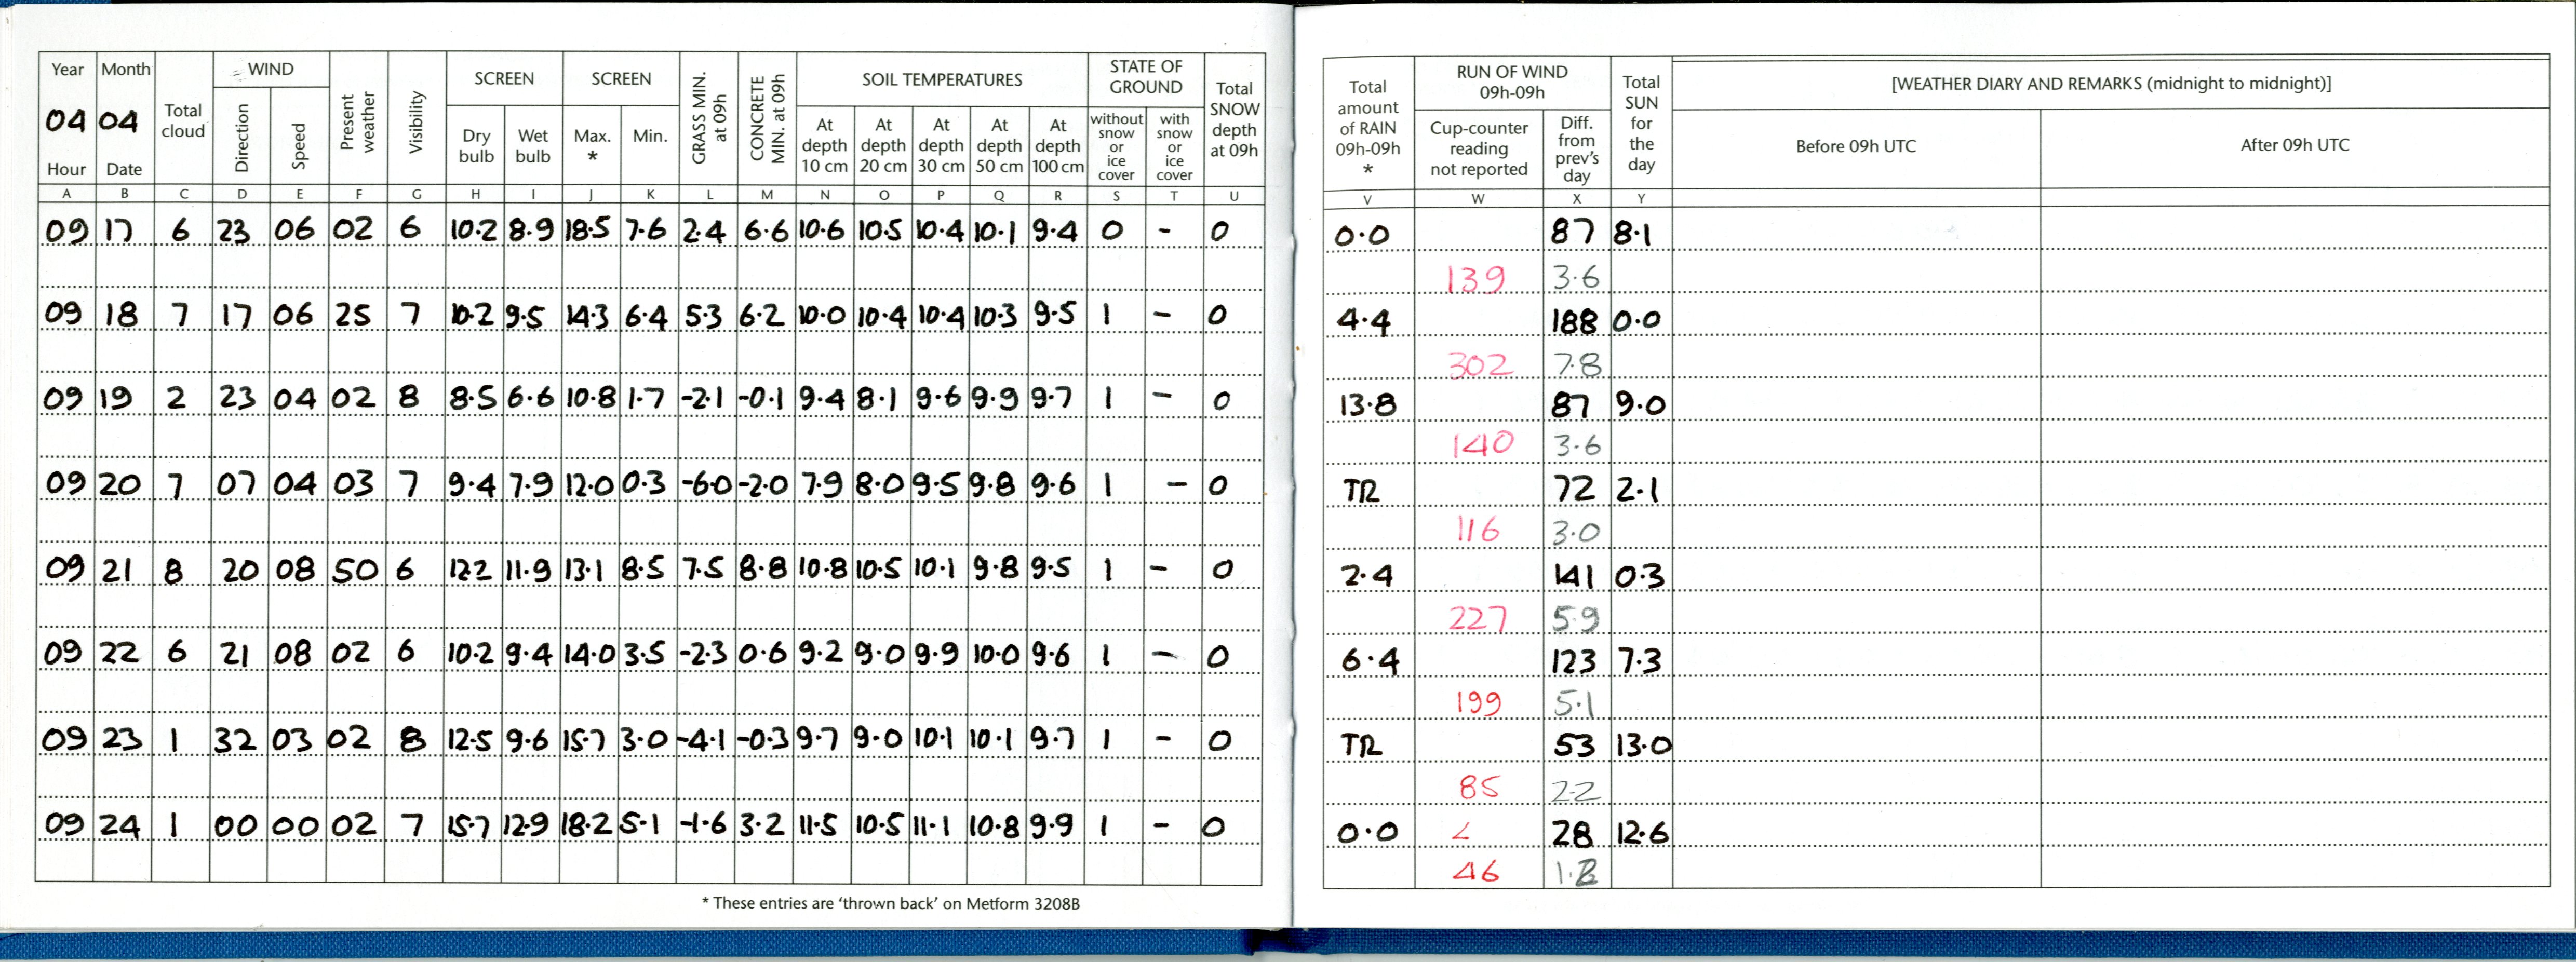 Year Month WIND SCREEN SCREEN SOIL TEMPERATURES STATE OF GROUND
04 04 Total cloud Direction Speed Present weather Visibility Dry bulb Wet bulb Max. * Min. GRASS MIN. at 09h CONCRETE MIN. at 09h At depth 10 cm At depth 20 cm At depth 30 cm At depth 50 cm At depth 100 cm without snow or ice cover with snow or ice cover Total SNOW depth at 09h
Hour Date
A B C D E F G H I J K L M N O P Q R S T U
09 17 6 23 06 02 6 10.2 8.9 18.5 7.6 2.4 6.6 10.6 10.5 10.4 10.1 9.4 0 - 0
09 18 7 17 06 25 7 10.2 9.5 14.3 6.4 5.3 6.2 10.0 10.4 10.4 10.3 9.5 1 - 0
09 19 2 23 04 02 8 8.5 6.6 10.8 1.7 -2.1 -0.1 9.4 8.1 9.6 9.9 9.7 1 - 0
09 20 7 07 04 03 7 9.4 7.9 12.0 0.3 -6.0 -2.0 7.9 8.0 9.5 9.8 9.6 1 - 0
09 21 8 20 08 50 6 12.2 11.9 13.1 8.5 7.5 8.8 10.8 10.5 10.1 9.8 9.5 1 - 0
09 22 6 21 08 02 6 10.2 9.4 14.0 3.5 -2.3 0.6 9.2 9.0 9.9 10.0 9.6 1 - 0
09 23 1 32 03 02 8 12.5 9.6 15.7 3.0 -4.1 -0.3 9.7 9.0 10.1 10.1 9.7 1 - 0
09 24 1 00 00 02 7 15.7 12.9 18.2 5.1 -1.6 3.2 11.5 10.5 11.1 10.8 9.9 1 - 0
* These entries are 'thrown back' on Metform 3208B
Total amount of RAIN 09h-09h * RUN OF WIND 09h-09h Total SUN for the day [WEATHER DIARY AND REMARKS (midnight to midnight)]
Cup-counter reading not reported Diff. from prev's day Before 09h UTC After 09h UTC
V W X Y
0.0 87 8.1
139 3.6
4.4 188 0.0
302 7.8
13.8 87 9.0
140 3.6
TR 72 2.1
116 3.0
2.4 141 0.3
227 5.9
6.4 123 7.3
199 5.1
TR 53 13.0
85 2.2
0.0 28 12.6
46